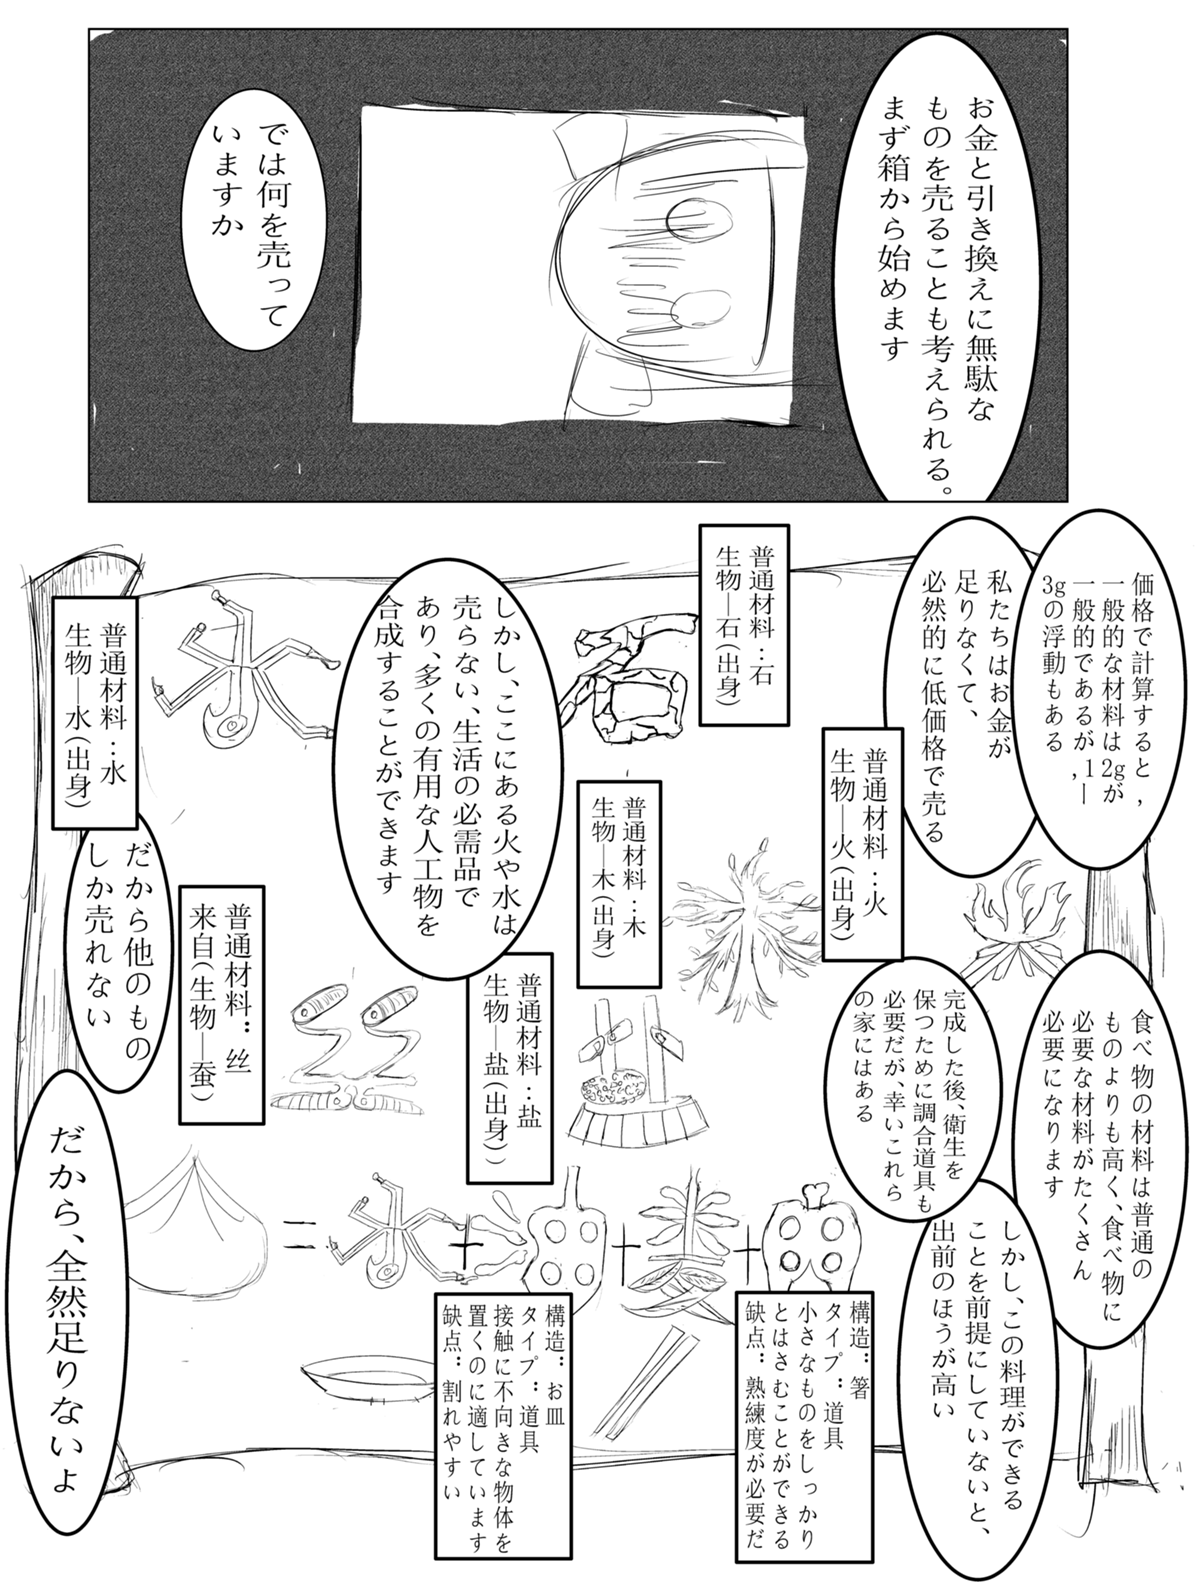 お金と引き換えに無駄な
ものを売ることも考えられる。
まず箱から始めます
では何を売って
いますか
価格で計算すると,
一般的な材料は2gが
一般的であるが,1—
3gの浮動もある
私たちはお金が
足りなくて、
必然的に低価格で売る
普通材料:石
生物—石(出身)
しかし、ここにある火や水は
売らない、生活の必需品で
あり、多くの有用な人工物を
合成することができます
普通材料:水
生物—水(出身)
普通材料:火
生物—火(出身)
普通材料:木
生物—木(出身)
だから他のもの
しか売れない
普通材料:丝
来自(生物—蚕)
普通材料:盐
生物—盐(出身)
食べ物の材料は普通の
ものよりも高く、食べ物に
必要な材料がたくさん
必要になります
完成した後、衛生を
保つために調合道具も
必要だが、幸いこれら
の家にはある
しかし、この料理ができる
ことを前提にしていないと、
出前のほうが高い
だから、全然足りないよ
=
+
+
+
構造:箸
タイプ:道具
小さなものをしっかり
とはさむことができる
缺点:熟練度が必要だ
構造:お皿
タイプ:道具
接触に不向きな物体を
置くのに適しています
缺点:割れやすい